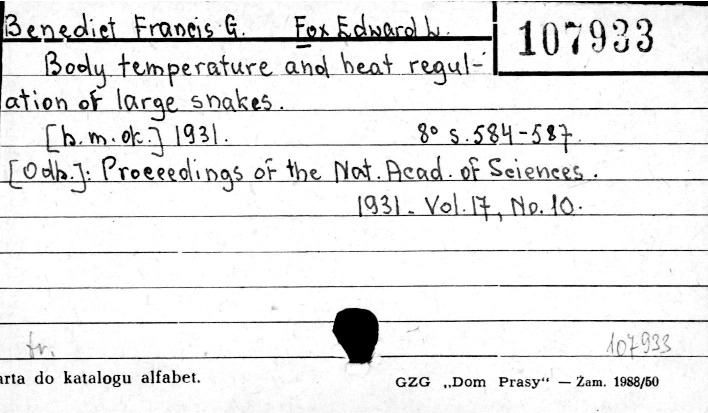 Benedict Francis G. Fox Edward L.
107933
Body temperature and heat regul-
ation of large snakes.
[b.m.ok.] 1931. 8° s.584-587.
[Odb.]: Proceedings of the Nat. Acad. of Sciences.
1931. Vol.17, No.10.
fr.
107933
arta do katalogu alfabet.
GZG „Dom Prasy“ — Zam. 1988/50